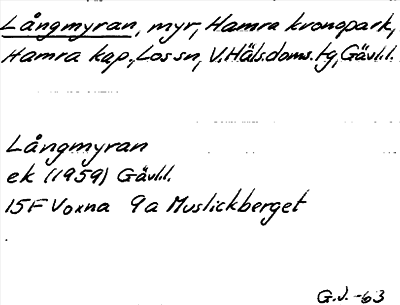 Långmyran, myr, Hamra kronopark,
Hamra kap., Los sn, V.Häls.doms.tg, Gävl.l.
Långmyran
ek (1959) Gävl.l.
15F Voxna 9a Muslickberget
G.J. -63